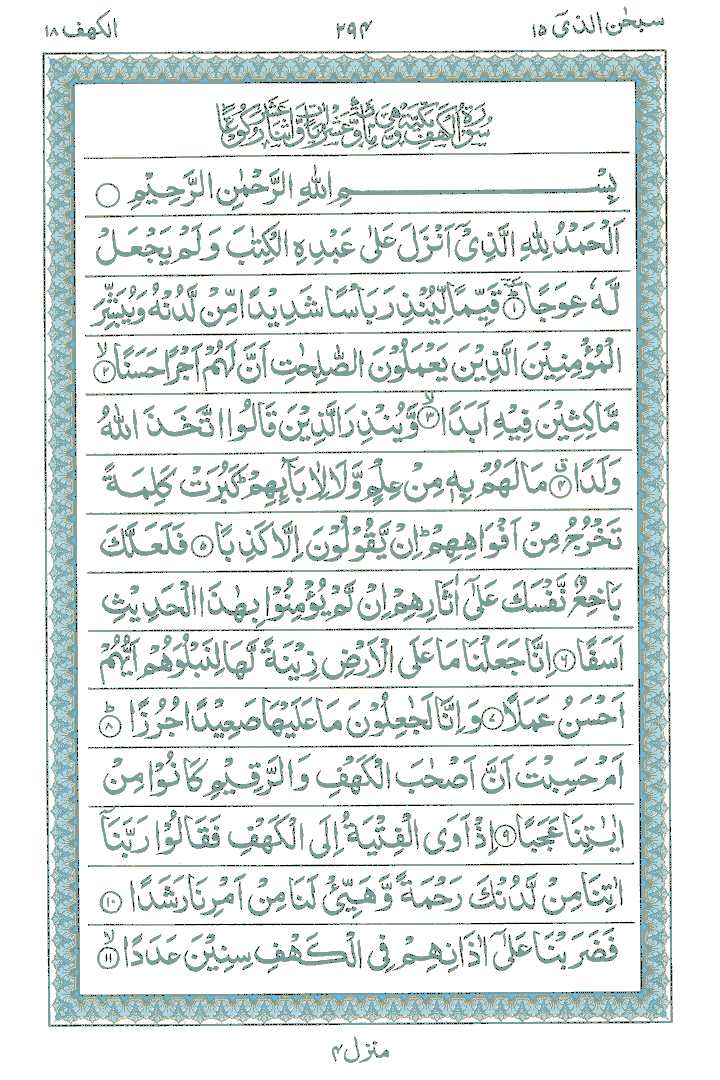 سبحٰن الذیٓ ۱۵ ۲۹۴ الکهف ۱۸
سُوْرَةُ الْکَهْفِ مَکِّیَّةٌ وَّهِیَ مِائَةٌ وَّعَشْرُ اٰیَاتٍ وَّاثْنَا عَشَرَ رُکُوْعًا
بِسْمِ اللّٰهِ الرَّحْمٰنِ الرَّحِیْمِ ○
اَلْحَمْدُ لِلّٰهِ الَّذِیْۤ اَنْزَلَ عَلٰی عَبْدِهِ الْکِتٰبَ وَ لَمْ یَجْعَلْ
لَّهٗ عِوَجًا ؕ۱ قَیِّمًا لِّیُنْذِرَ بَاْسًا شَدِیْدًا مِّنْ لَّدُنْهُ وَ یُبَشِّرَ
الْمُؤْمِنِیْنَ الَّذِیْنَ یَعْمَلُوْنَ الصّٰلِحٰتِ اَنَّ لَهُمْ اَجْرًا حَسَنًا ۙ۲
مَّاکِثِیْنَ فِیْهِ اَبَدًا ۙ۳ وَّ یُنْذِرَ الَّذِیْنَ قَالُوا اتَّخَذَ اللّٰهُ
وَلَدًا ۗ۴ مَا لَهُمْ بِهٖ مِنْ عِلْمٍ وَّ لَا لِاٰبَآئِهِمْ ؕ کَبُرَتْ کَلِمَةً
تَخْرُجُ مِنْ اَفْوَاهِهِمْ ؕ اِنْ یَّقُوْلُوْنَ اِلَّا کَذِبًا ۵ فَلَعَلَّکَ
بَاخِعٌ نَّفْسَکَ عَلٰۤی اٰثَارِهِمْ اِنْ لَّمْ یُؤْمِنُوْا بِهٰذَا الْحَدِیْثِ
اَسَفًا ۶ اِنَّا جَعَلْنَا مَا عَلَی الْاَرْضِ زِیْنَةً لَّهَا لِنَبْلُوَهُمْ اَیُّهُمْ
اَحْسَنُ عَمَلًا ۷ وَ اِنَّا لَجٰعِلُوْنَ مَا عَلَیْهَا صَعِیْدًا جُرُزًا ؕ۸
اَمْ حَسِبْتَ اَنَّ اَصْحٰبَ الْکَهْفِ وَ الرَّقِیْمِ کَانُوْا مِنْ
اٰیٰتِنَا عَجَبًا ۹ اِذْ اَوَی الْفِتْیَةُ اِلَی الْکَهْفِ فَقَالُوْا رَبَّنَاۤ
اٰتِنَا مِنْ لَّدُنْکَ رَحْمَةً وَّ هَیِّئْ لَنَا مِنْ اَمْرِنَا رَشَدًا ۱۰
فَضَرَبْنَا عَلٰۤی اٰذَانِهِمْ فِی الْکَهْفِ سِنِیْنَ عَدَدًا ۙ۱۱
منزل ۴